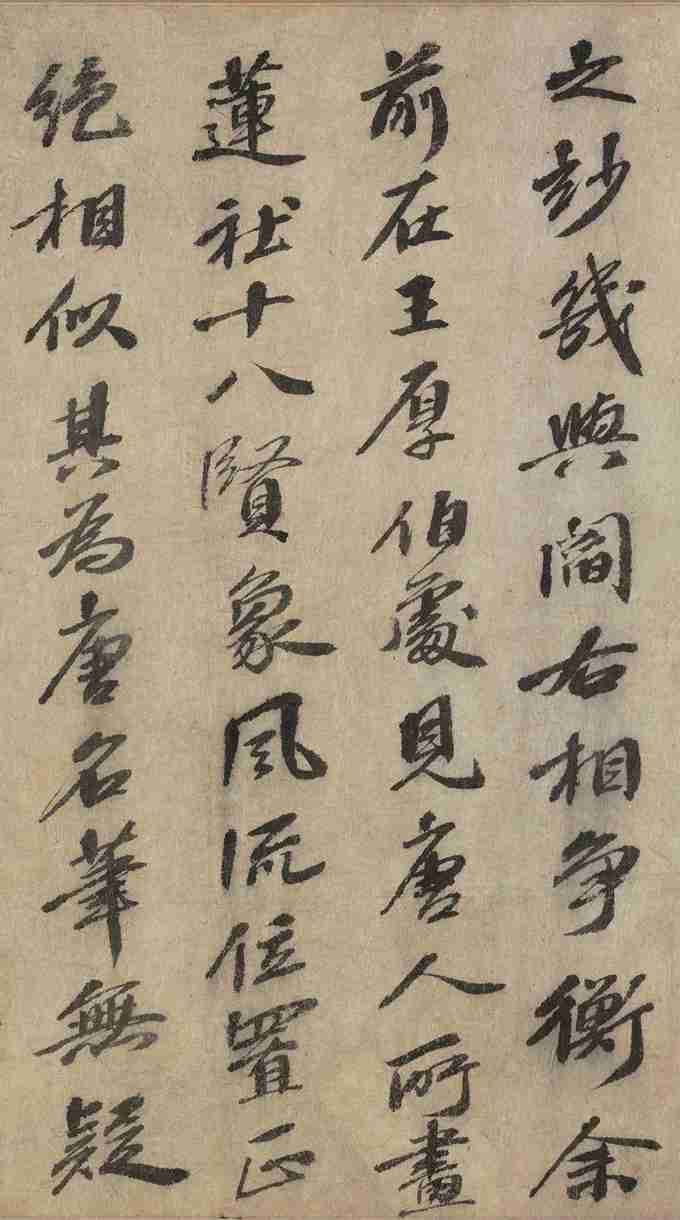 之玅幾與閻右相爭衡余
前在王厚伯處見唐人所畫
蓮社十八賢象風流位置正
絕相似其為唐名筆無疑